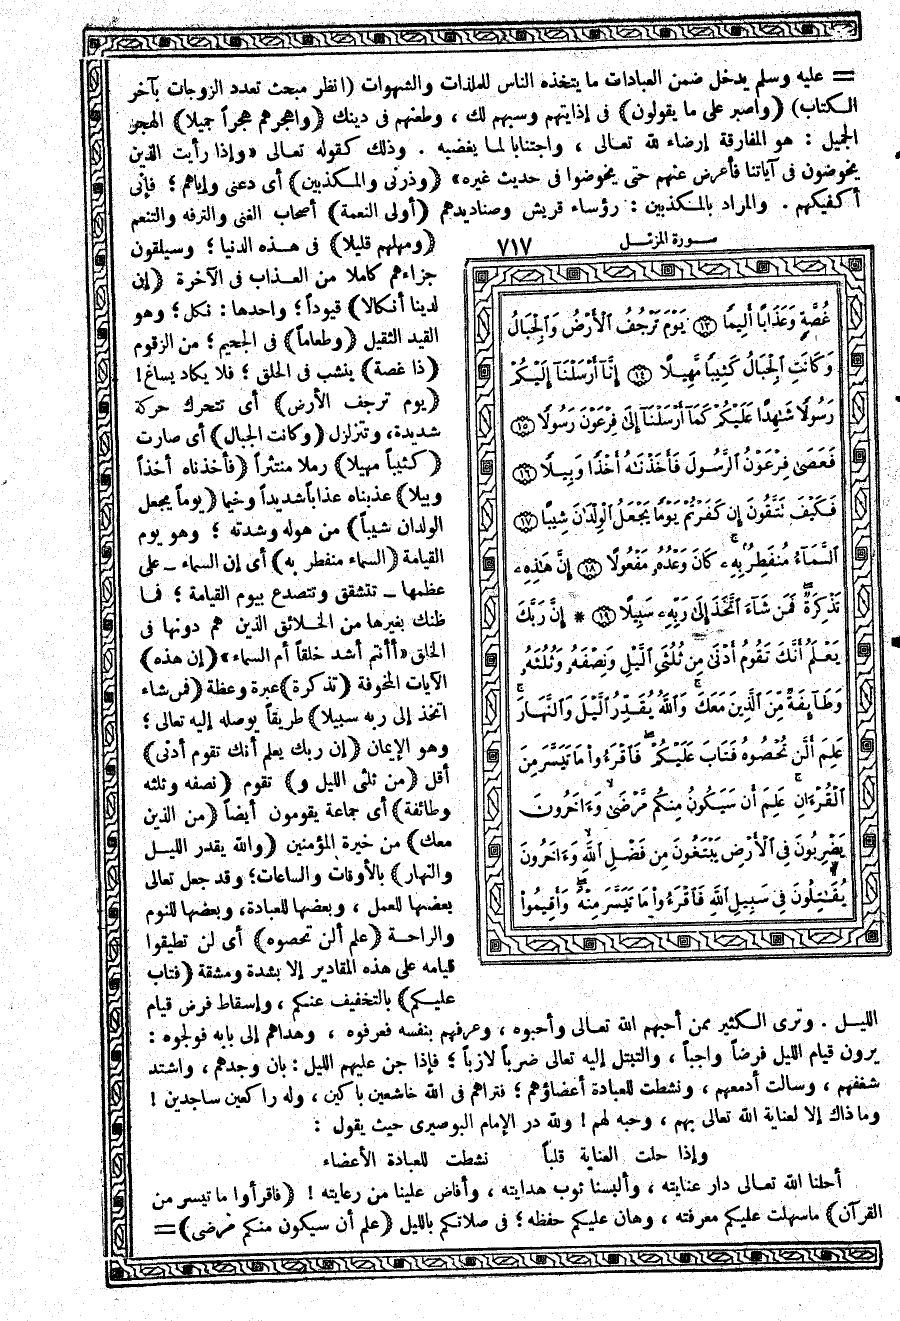 = عليه وسلم يدخل ضمن العبادات ما يتخذه الناس للملذات والشهوات (انظر مبحث تعدد الزوجات بآخر
الكتاب) (واصبر على ما يقولون) فى إذايتهم وسبهم لك ، وطعنهم فى دينك (واهجرهم هجراً جميلا) الهجر
الجميل : هو المفارقة إرضاء لله تعالى ، واجتنابا لما يغضبه . وذلك كقوله تعالى «وإذا رأيت الذين
يخوضون فى آياتنا فأعرض عنهم حتى يخوضوا فى حديث غيره» (وذرنى والمكذبين) أى دعنى وإياهم ؛ فإنى
أكفيكهم . والمراد بالمكذبين : رؤساء قريش وصناديدهم (أولى النعمة) أصحاب الغنى والترفه والتنعم
سورة المزمل ٧١٧
غُصَّةٍ وَعَذَابًا أَلِيمًا ⁧(١٣)⁩ يَوْمَ تَرْجُفُ ٱلْأَرْضُ وَٱلْجِبَالُ
وَكَانَتِ ٱلْجِبَالُ كَثِيبًا مَّهِيلًا (١٤) إِنَّآ أَرْسَلْنَآ إِلَيْكُمْ
رَسُولًا شَٰهِدًا عَلَيْكُمْ كَمَآ أَرْسَلْنَآ إِلَىٰ فِرْعَوْنَ رَسُولًا (١٥)
فَعَصَىٰ فِرْعَوْنُ ٱلرَّسُولَ فَأَخَذْنَٰهُ أَخْذًا وَبِيلًا (١٦)
فَكَيْفَ تَتَّقُونَ إِن كَفَرْتُمْ يَوْمًا يَجْعَلُ ٱلْوِلْدَٰنَ شِيبًا (١٧)
ٱلسَّمَآءُ مُنفَطِرٌۢ بِهِۦ ۚ كَانَ وَعْدُهُۥ مَفْعُولًا (١٨) إِنَّ هَٰذِهِۦ
تَذْكِرَةٌ ۖ فَمَن شَآءَ ٱتَّخَذَ إِلَىٰ رَبِّهِۦ سَبِيلًا (١٩) * إِنَّ رَبَّكَ
يَعْلَمُ أَنَّكَ تَقُومُ أَدْنَىٰ مِن ثُلُثَىِ ٱلَّيْلِ وَنِصْفَهُۥ وَثُلُثَهُۥ
وَطَآئِفَةٌ مِّنَ ٱلَّذِينَ مَعَكَ ۚ وَٱللَّهُ يُقَدِّرُ ٱلَّيْلَ وَٱلنَّهَارَ ۚ
عَلِمَ أَلَّن تُحْصُوهُ فَتَابَ عَلَيْكُمْ ۖ فَٱقْرَءُوا۟ مَا تَيَسَّرَ مِنَ
ٱلْقُرْءَانِ ۚ عَلِمَ أَن سَيَكُونُ مِنكُم مَّرْضَىٰ ۙ وَءَاخَرُونَ
يَضْرِبُونَ فِى ٱلْأَرْضِ يَبْتَغُونَ مِن فَضْلِ ٱللَّهِ ۙ وَءَاخَرُونَ
يُقَٰتِلُونَ فِى سَبِيلِ ٱللَّهِ ۖ فَٱقْرَءُوا۟ مَا تَيَسَّرَ مِنْهُ ۚ وَأَقِيمُوا۟
(ومهلهم قليلا) فى هذه الدنيا ؛ وسيلقون
جزاءهم كاملا من العذاب فى الآخرة (إن
لدينا أنكالا) قيوداً ؛ واحدها : نكل ؛ وهو
القيد الثقيل (وطعاماً) فى الجحيم ؛ من الزقوم
(ذا غصة) ينشب فى الحلق ؛ فلا يكاد يساغ !
(يوم ترجف الأرض) أى تتحرك حركة
شديدة، وتتزلزل (وكانت الجبال) أى صارت
(كثيباً مهيلا) رملا منتثراً (فأخذناه أخذاً
وبيلا) عذبناه عذاباً شديداً وخيما (يوماً يجعل
الولدان شيباً) من هوله وشدته ؛ وهو يوم
القيامة (السماء منفطر به) أى إن السماء ـ على
عظمها ـ تتشقق وتتصدع بيوم القيامة ؛ فما
ظنك بغيرها من الخلائق الذين هم دونها فى
الخلق «أأنتم أشد خلقاً أم السماء» (إن هذه)
الآيات المخوفة (تذكرة) عبرة وعظة (فمن شاء
اتخذ إلى ربه سبيلا) طريقاً يوصله إليه تعالى ؛
وهو الإيمان (إن ربك يعلم أنك تقوم أدنى)
أقل (من ثلثى الليل و) تقوم (نصفه وثلثه
وطائفة) أى جماعة يقومون أيضاً (من الذين
معك) من خيرة المؤمنين (والله يقدر الليل
والنهار) بالأوقات والساعات؛ وقد جعل تعالى
بعضها للعمل ، وبعضها للعبادة، وبعضها للنوم
والراحة (علم ألن تحصوه) أى لن تطيقوا
قيامه على هذه المقادير إلا بشدة ومشقة (فتاب
عليكم) بالتخفيف عنكم ، وإسقاط فرض قيام
الليل . وترى الكثير ممن أحبهم الله تعالى وأحبوه ، وعرفهم بنفسه فعرفوه ، وهداهم إلى بابه فولجوه :
يرون قيام الليل فرضاً واجباً ، والتبتل إليه تعالى ضرباً لازباً ؛ فإذا جن عليهم الليل : بان وجدهم ، واشتد
شغفهم ، وسالت أدمعهم ، ونشطت للعبادة أعضاؤهم ؛ فتراهم فى الله خاشعين باكين ، وله راكعين ساجدين !
وما ذاك إلا لعناية الله تعالى بهم ، وحبه لهم ! ولله در الإمام البوصيرى حيث يقول :
وإذا حلت العناية قلباً نشطت للعبادة الأعضاء
أحلنا الله تعالى دار عنايته ، وألبسنا ثوب هدايته ، وأفاض علينا من رعايته ! (فاقرأوا ما تيسر من
القرآن) ما سهلت عليكم معرفته ، وهان عليكم حفظه ؛ فى صلاتكم بالليل (علم أن سيكون منكم مرضى) =